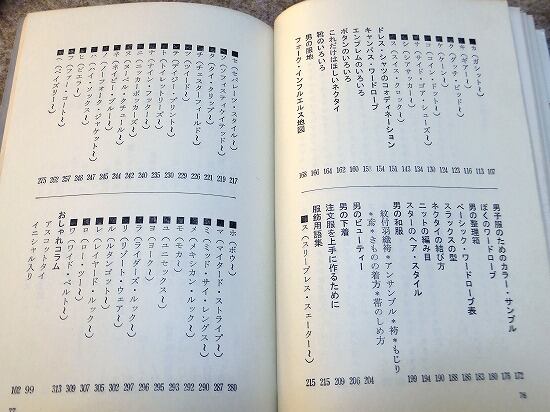 ■カ（ガンクット〜） 107
■キ（ギンガー〜） 113
■ク（グッチ・ビッド〜） 116
■ケ（ケーシー〜） 123
■コ（コインドット〜） 124
■サ（サイド・ゴア・シューズ〜） 130
■シ（シアサッカー〜） 134
■ス（スイス・クロック〜） 143
ドレス・シャツのコォディネーション 151
キャンパス・ワードローブ 154
エンブレムのいろいろ
ボタンのいろいろ 160
これだけはほしいネクタイ 162
靴のいろいろ 164
男の服地 166
フェーク・インフルエルス地図 168
男子服のためのカラー・サンプル 172
ぼくのワードローブ 176
男の整理箱 180
ベーシック・ワードローブ表 183
スラックスの型 186
ネクタイの結び方 188
ニットの編み目 190
スターのヘア・スタイル 194
男の和服 199
紋付羽織袴＊アンサンブル＊袴＊もじり
＊足袋＊きものの着方＊帯のしめ方
男のビューティー 204
男の下着 206
注文服を上手に作るために 209
服飾用語集 215
■ス（スリープレス・スェーター〜） 215
76
■セ（セパレーツ・スタイル〜） 217
■ソ（ソフィスティケイテッド〜） 219
■タ（タイ・クリップ〜） 221
■チ（チェスターフィールド〜） 226
■ツ（ツイード〜） 229
■テ（テディー・プリント〜） 230
■ナ（ナイト・ウォッチ〜）
■ニ（ニッカーボッカーズ〜）
■ヌ（ヌーベル・クチュール〜）
■ネ（ネイビー・ブルー〜）
■ノ（ノーフォーク・ジャケット〜）
■ハ（ハイ・ソックス〜） 247
■ヒ（ピエラ〜） 248
■フ（ファー・コート〜）
■ヘ（ペイズリー〜） 275
■ホ（ボウ〜） 280
■マ（マイタード・ストライプ〜） 287
■ミ（ミッド・サイ・レングス〜） 290
■メ（メキシカン・ルック〜） 291
■モ（モカ〜） 292
■ユ（ユニセックス〜） 293
■ヨ（ヨーク〜） 295
■ラ（ライダーズ・ルック〜） 296
■リ（リゾート・ウェア〜） 297
■ル（ルダンゴット〜） 302
■レ（レイヤード・ルック〜） 305
■ロ（ロー・ツー〜） 307
■ワ（ワイド・ベルト〜） 309
おしゃれコラム 313
アスコットタイ 99
イニシャル入り 102
77